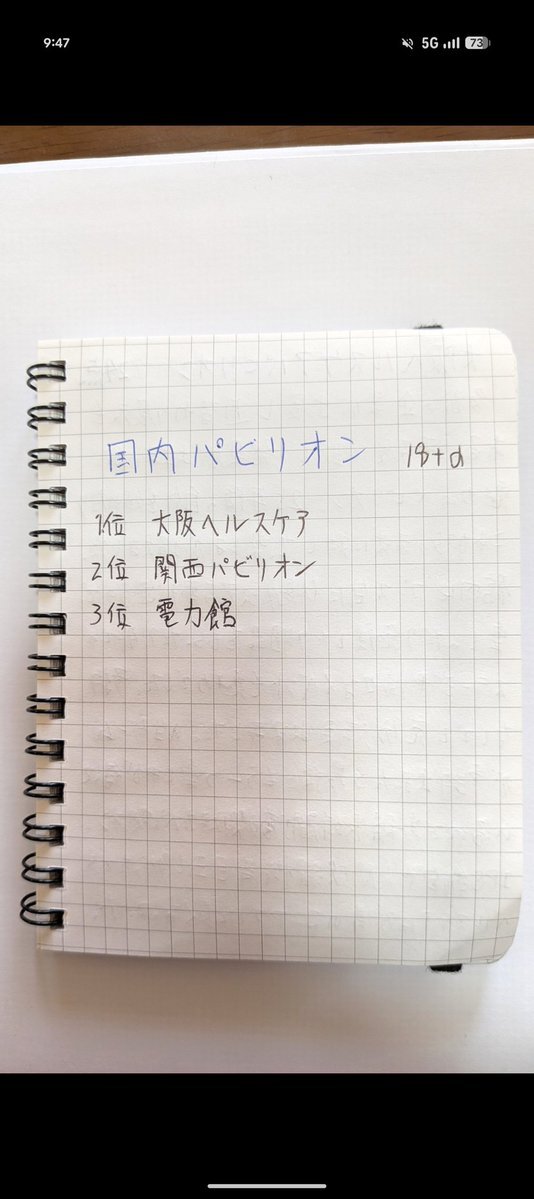 9:47 5G 73
国内パビリオン 18+α
1位 大阪ヘルスケア
2位 関西パビリオン
3位 電力館